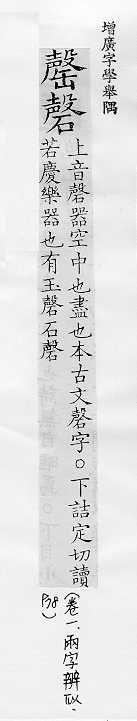 增廣字學舉隅
罄磬
上音磬器空中也盡也本古文磬字○下詰定切讀
若慶樂器也有玉磬石磬
(卷一、兩字辨似、
P98)